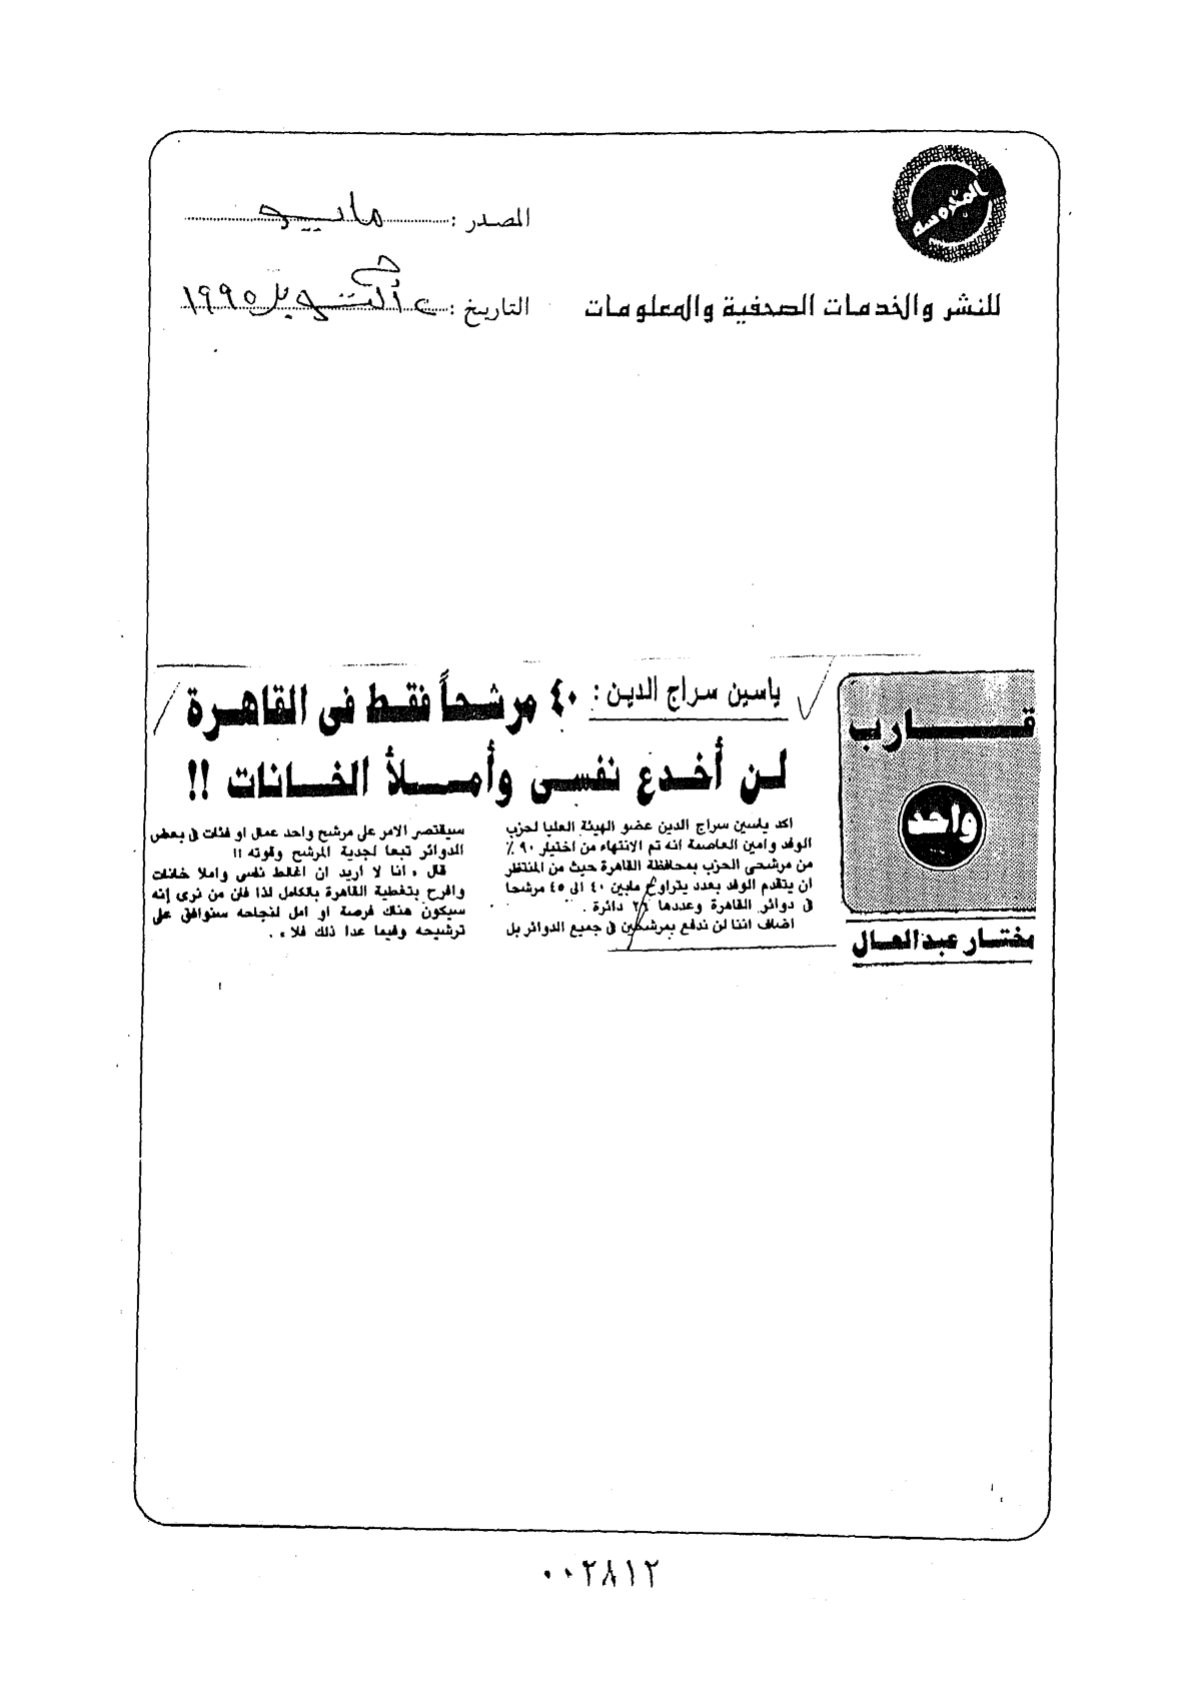 المحروسه
المصدر : مايو
للنشر والخدمات الصحفية والمعلومات
التاريخ : أكتوبر ١٩٩٥
قارب
واحد
مختار عبدالعال
ياسين سراج الدين : ٤٠ مرشحاً فقط فى القاهرة
لن أخدع نفسى وأملأ الخانات !!
اكد ياسين سراج الدين عضو الهيئة العليا لحزب
الوفد وامين العاصمة انه تم الانتهاء من اختيار ٩٠٪
من مرشحى الحزب بمحافظة القاهرة حيث من المنتظر
ان يتقدم الوفد بعدد يتراوح مابين ٤٠ الى ٤٥ مرشحا
فى دوائر القاهرة وعددها ٢٦ دائرة .
اضاف اننا لن ندفع بمرشحين فى جميع الدوائر بل
سيقتصر الامر على مرشح واحد عمال او فئات فى بعض
الدوائر تبعا لجدية المرشح وقوته !!
قال « انا لا أريد ان اغالط نفسى واملا خانات
وافرح بتغطية القاهرة بالكامل لذا فان من نرى إنه
سيكون هناك فرصة او امل لنجاحه سنوافق على
ترشيحه وفيما عدا ذلك فلا » .
٠٠٢٨١٢